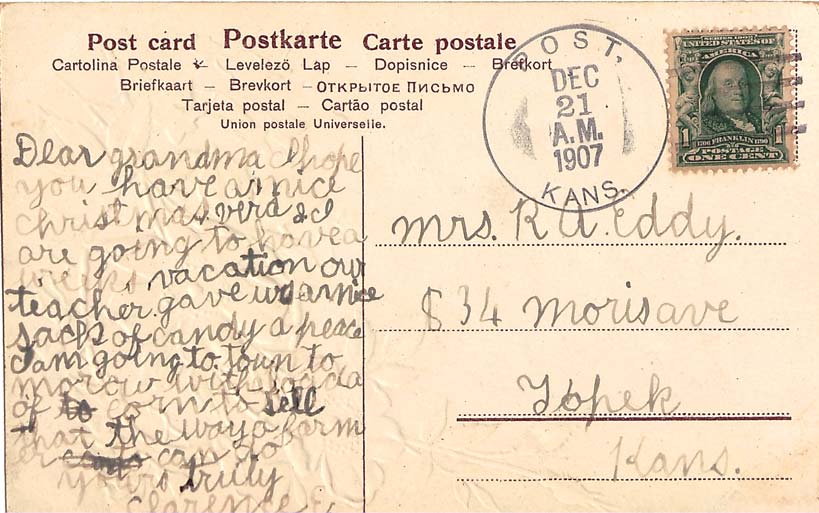 Post card Postkarte Carte postale
Cartolina Postale – Levelező Lap – Dopisnice – Brefkort
Briefkaart – Brevkort – ОТКРЫТОЕ ПИСЬМО
Tarjeta postal – Cartão postal
Union postale Universelle.
POST,
DEC
21
A.M.
1907
KANS.
SERIES 1902
UNITED STATES OF
AMERICA
1 1706 FRANKLIN 1790 1
POSTAGE
ONE CENT
Dear grandma I hope
you have a nice
christmas vera & I
are going to have a
weeks vacation our
teacher gave us a nice
sack of candy a peace
I am going to town to
morow with
of to corn to sell
that the way a farm
er can do
yours truly
Clarence E.
mrs. R A. Eddy.
34 moris ave
Topek
Kans.